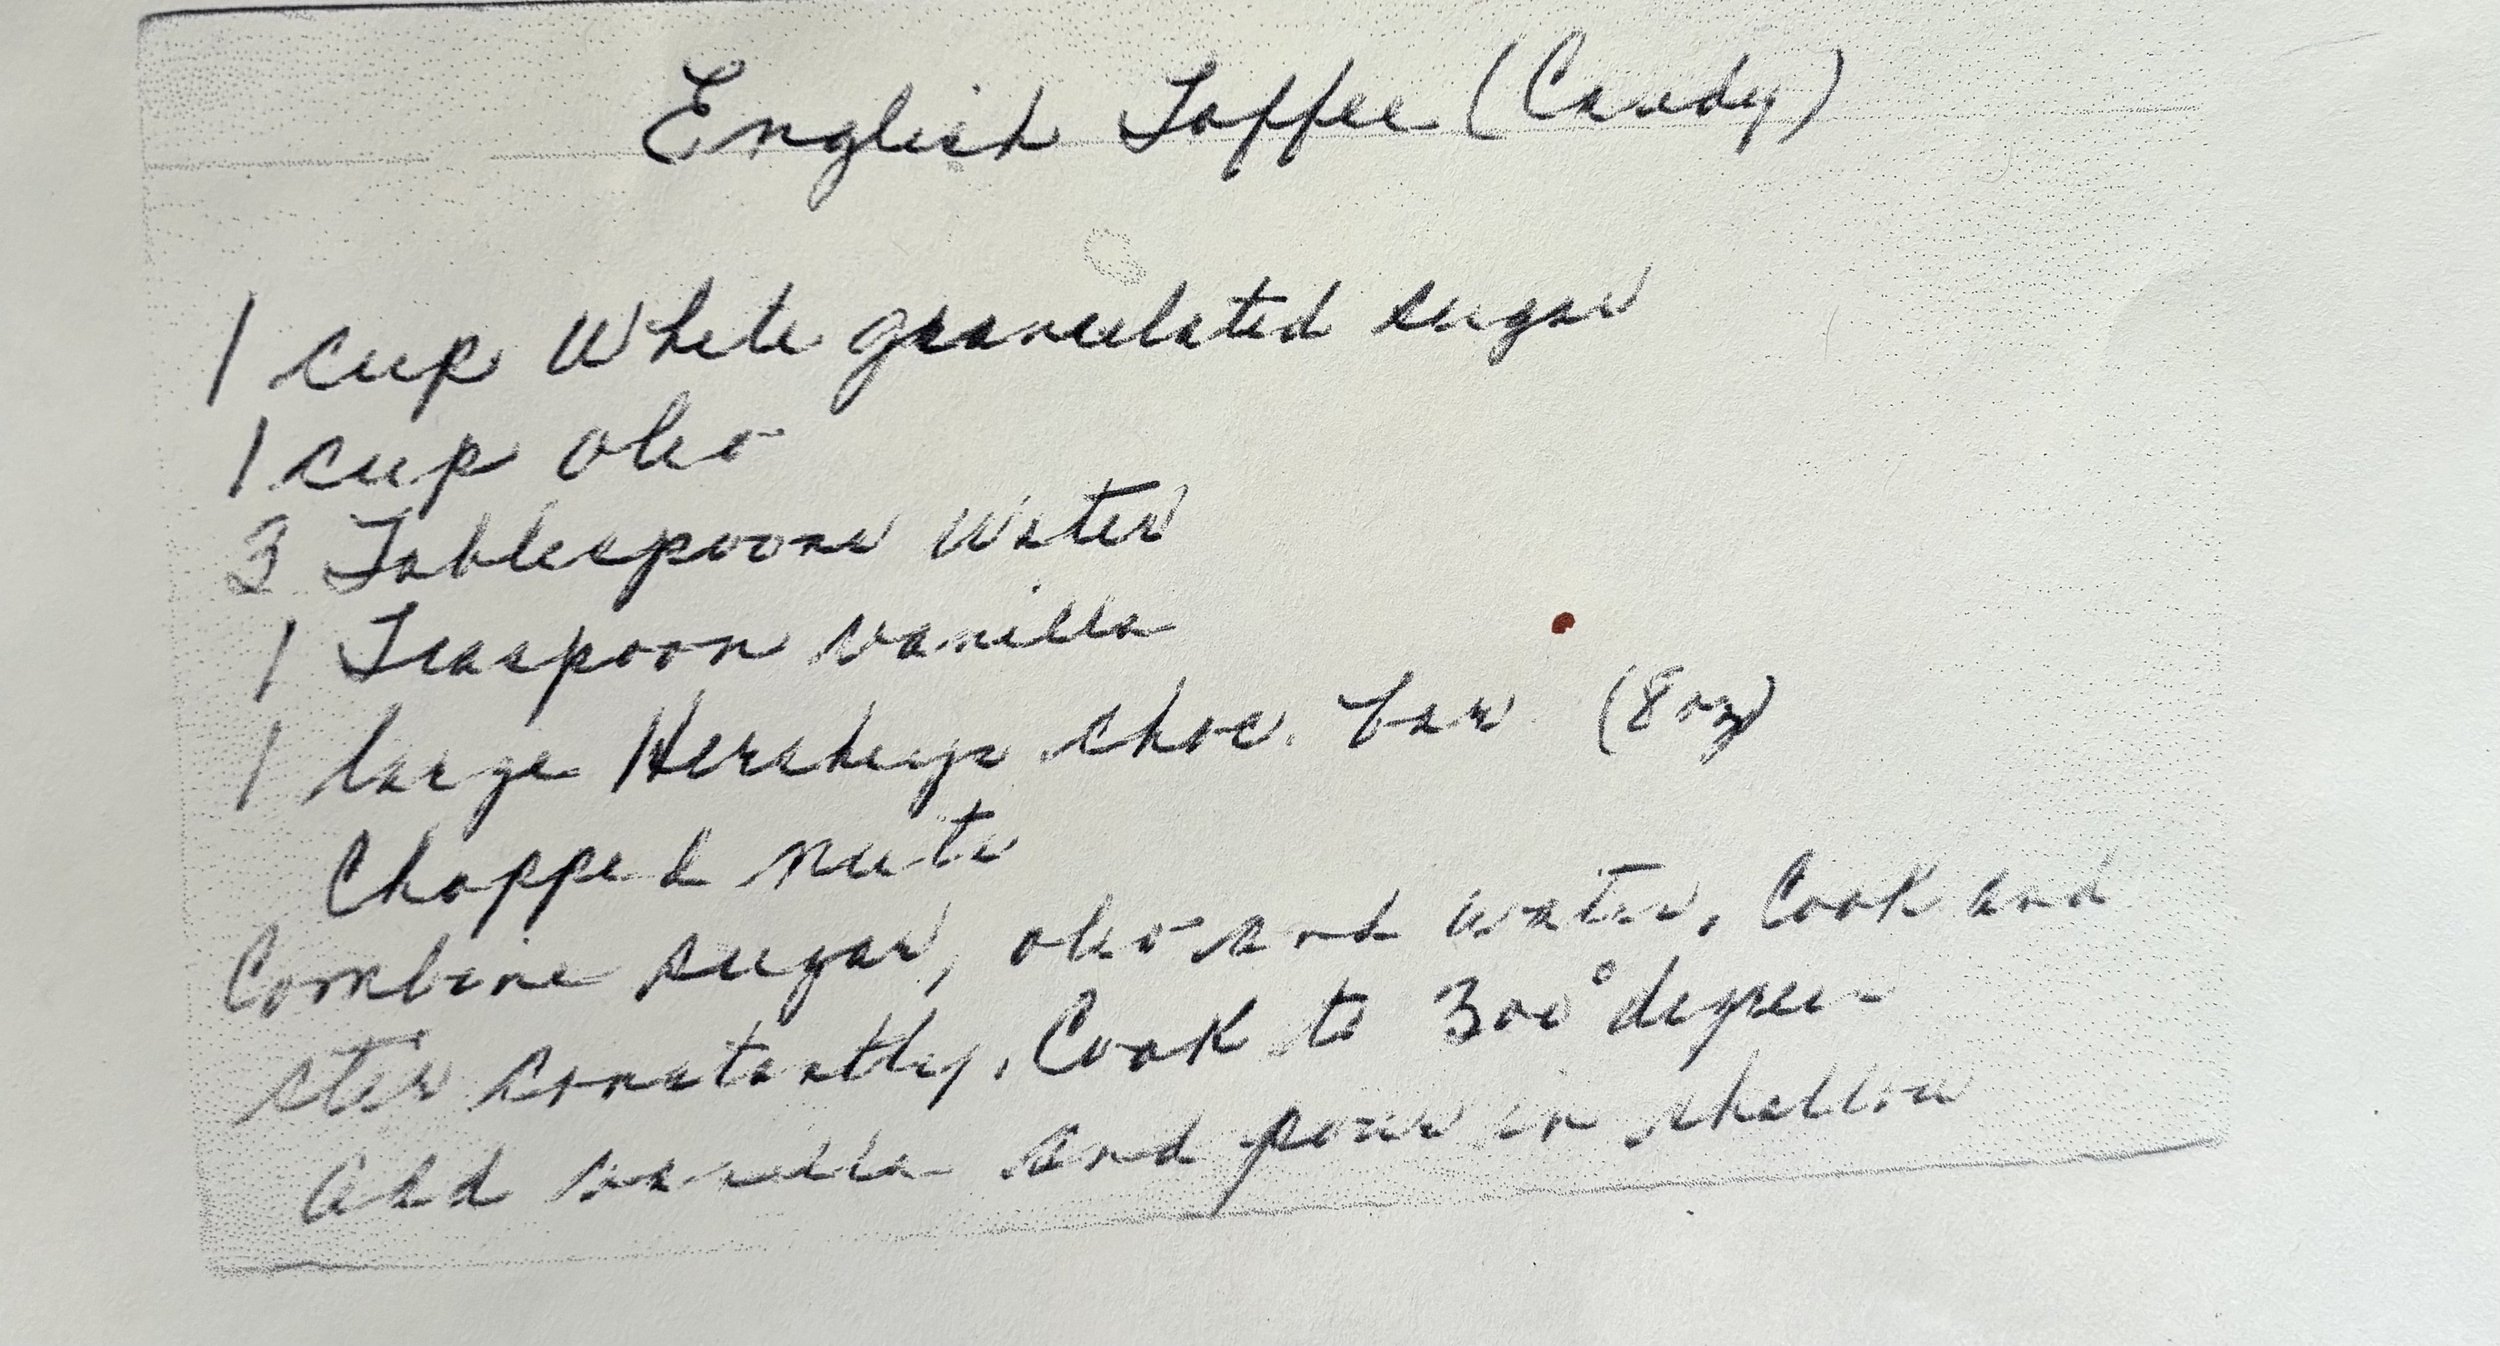 English Toffee (Candy)
1 cup White granulated sugar
1 cup oleo
3 Tablespoons Water
1 Teaspoon vanilla
1 large Hersheys choc. bar (8 oz)
Chopped nuts
Combine sugar, oleo and water. Cook and
stir constantly. Cook to 300° degrees
add vanilla and pour in shallow